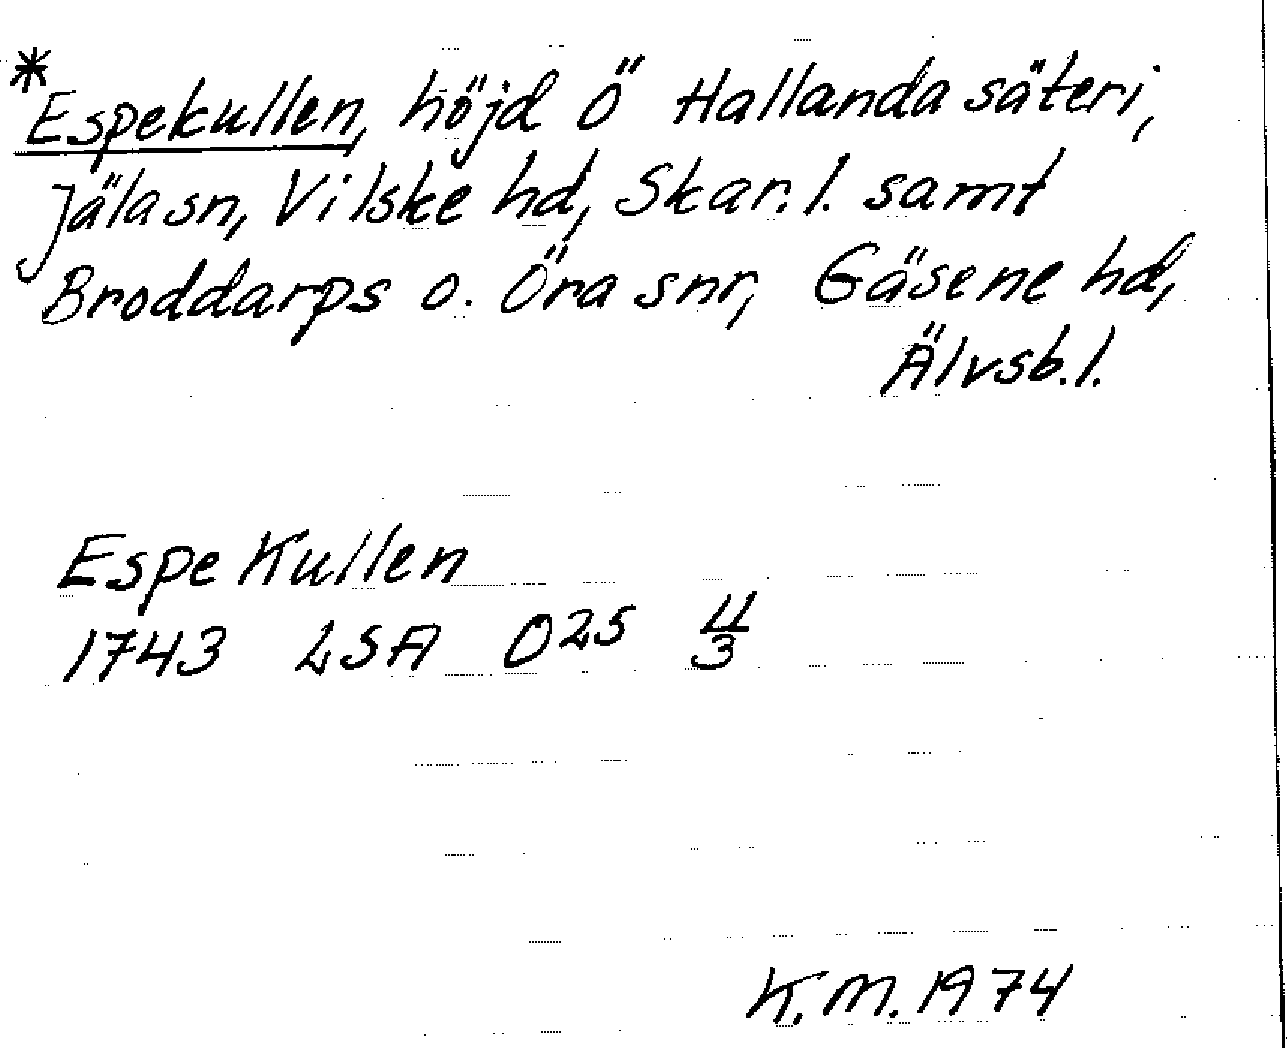 * Espekullen, höjd Ö Hallanda säteri,
Jäla sn, Vilske hd, Skar. l. samt
Broddarps o. Öra snr, Gäsene hd,
Älvsb. l.
Espe Kullen
1743 LSA O25 11/3
K.M. 1974